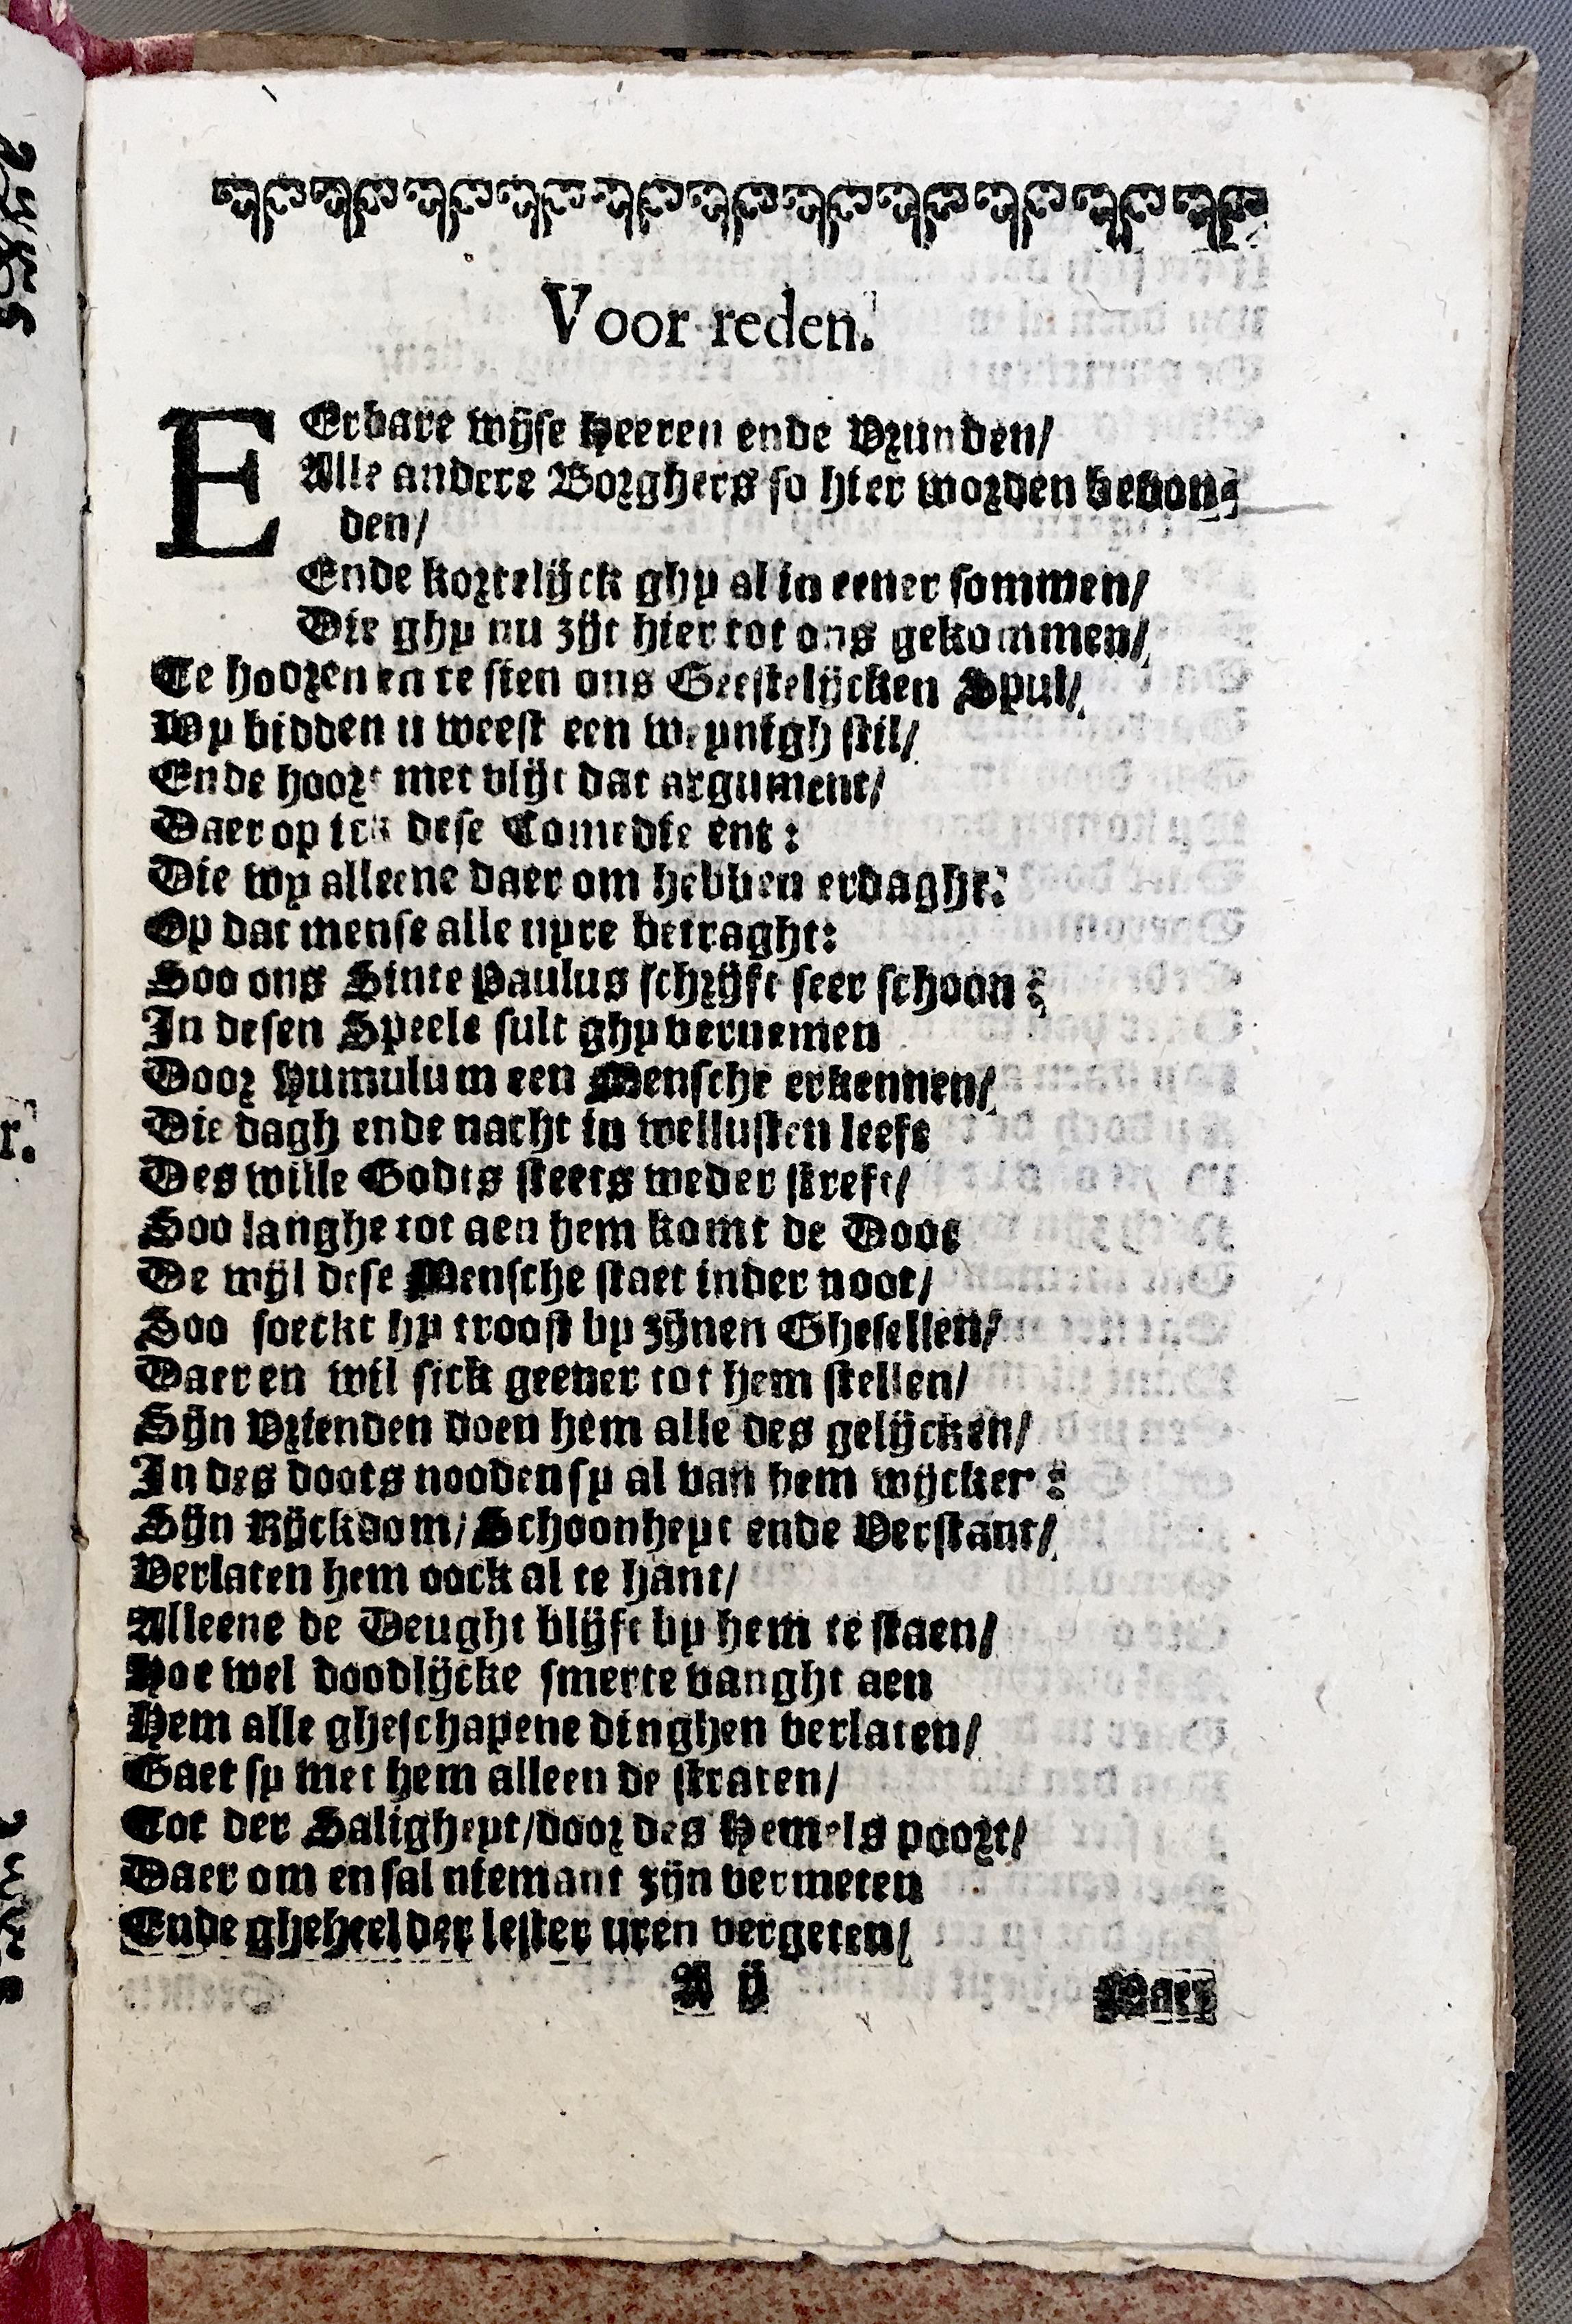 Voor-reden.
EErbare wijse Heeren ende Vrunden/
Alle andere Borghers so hier worden bevon-
den/
Ende kortelijck ghy al in eener sommen/
Die ghy nu zijt hier tot ons gekommen/
Te hooren en te sien ons Geestelijcken Spul/
Wy bidden u weest een weynigh stil/
Ende hoort met vlijt dat argument/
Daer op ick dese Comedie ent:
Die wy alleene daer om hebben erdaght:
Op dat mense alle uyre betraght:
Soo ons Sinte Paulus schrijft seer schoon:
In desen Speele sult ghy vernemen
Door Humulum een Mensche erkennen/
Die dagh ende nacht in wellusten leeft
Des wille Godts steets weder streft/
Soo langhe tot aen hem komt de Doot
De wijl dese Mensche staet in der noot/
Soo soeckt hy troost by zijnen Ghesellen/
Daer en wil sick geener tot hem stellen/
Sijn Vrienden doen hem alle des gelijcken/
In des doots nooden sy al van hem wijcken:
Sijn Rijckdom/ Schoonheyt ende Verstant/
Verlaten hem oock al te hant/
Alleene de Deught blijft by hem te staen/
Hoe wel doodlijcke smerte vanght aen
Hem alle gheschapene dinghen verlaten/
Gaet sy met hem alleen de straten/
Tot der Saligheyt/door des Hemels poort/
Daer om en sal niemant zijn vermeten
Ende gheheel der lester uren vergeten/
A ij
Maer